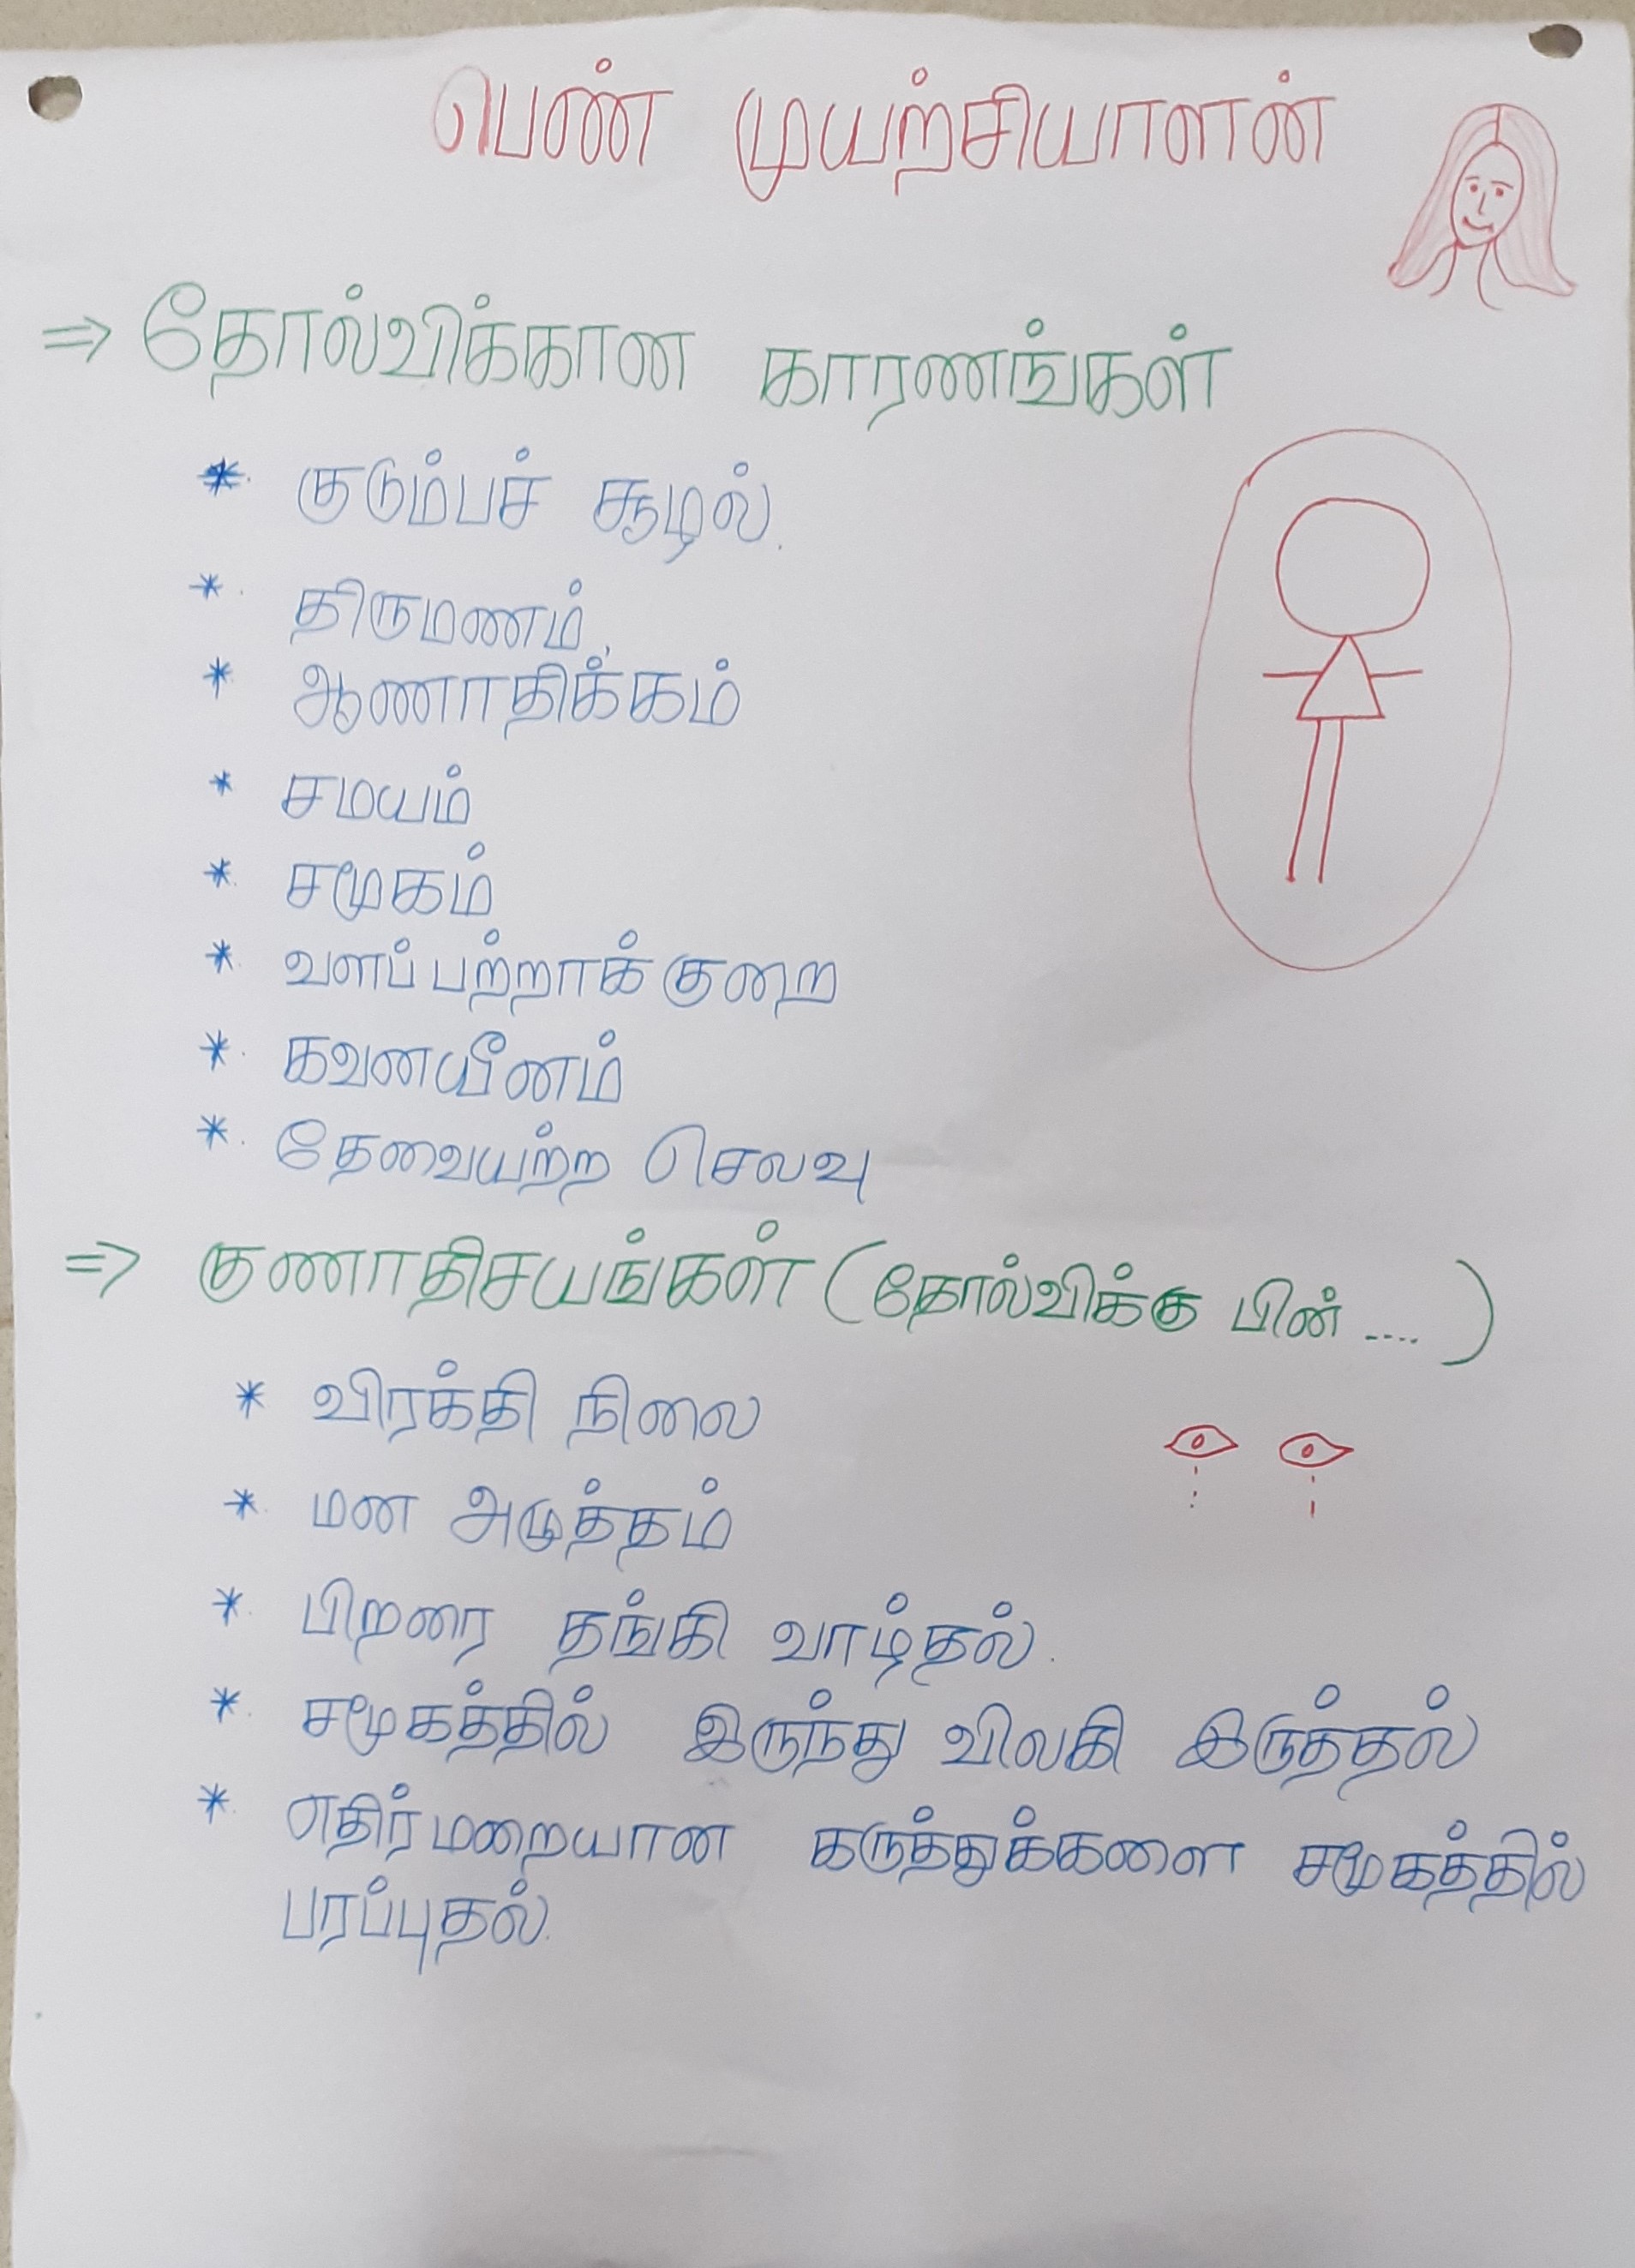 பெண் முயற்சியாளன்
⇒ தோல்விக்கான காரணங்கள்
* குடும்பச் சூழல்.
* திருமணம்.
* ஆணாதிக்கம்
* சமயம்
* சமூகம்
* வளப்பற்றாக்குறை
* கவனயீனம்
* தேவையற்ற செலவு
⇒ குணாதிசயங்கள் (தோல்விக்கு பின் ....)
* விரக்தி நிலை
* மன அடுத்தம்
* பிறரை தங்கி வாழ்தல்.
* சமூகத்தில் இருந்து விலகி இருத்தல்
* எதிர்மறையான கருத்துக்களை சமூகத்தில்
பரப்புதல்.